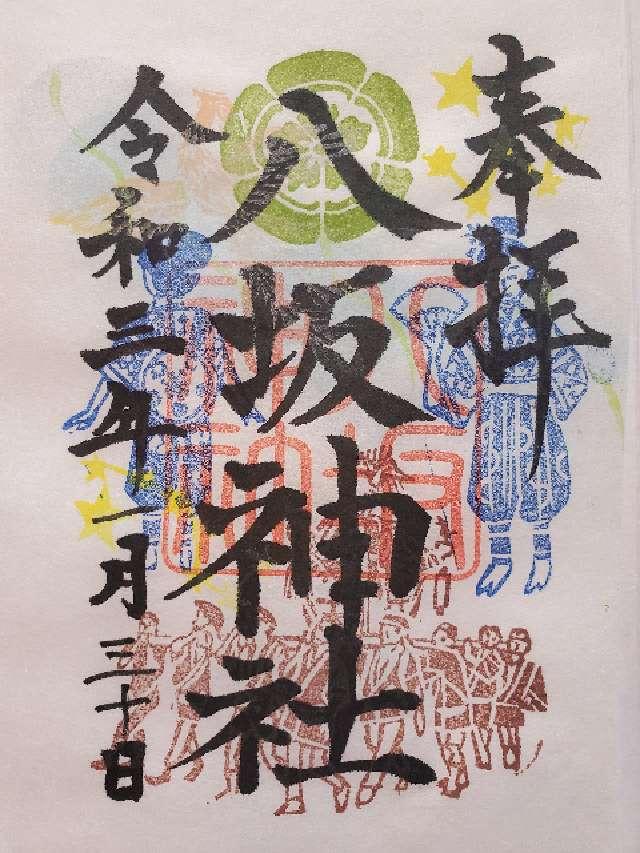 奉拝
八坂神社
令和三年一月三十日